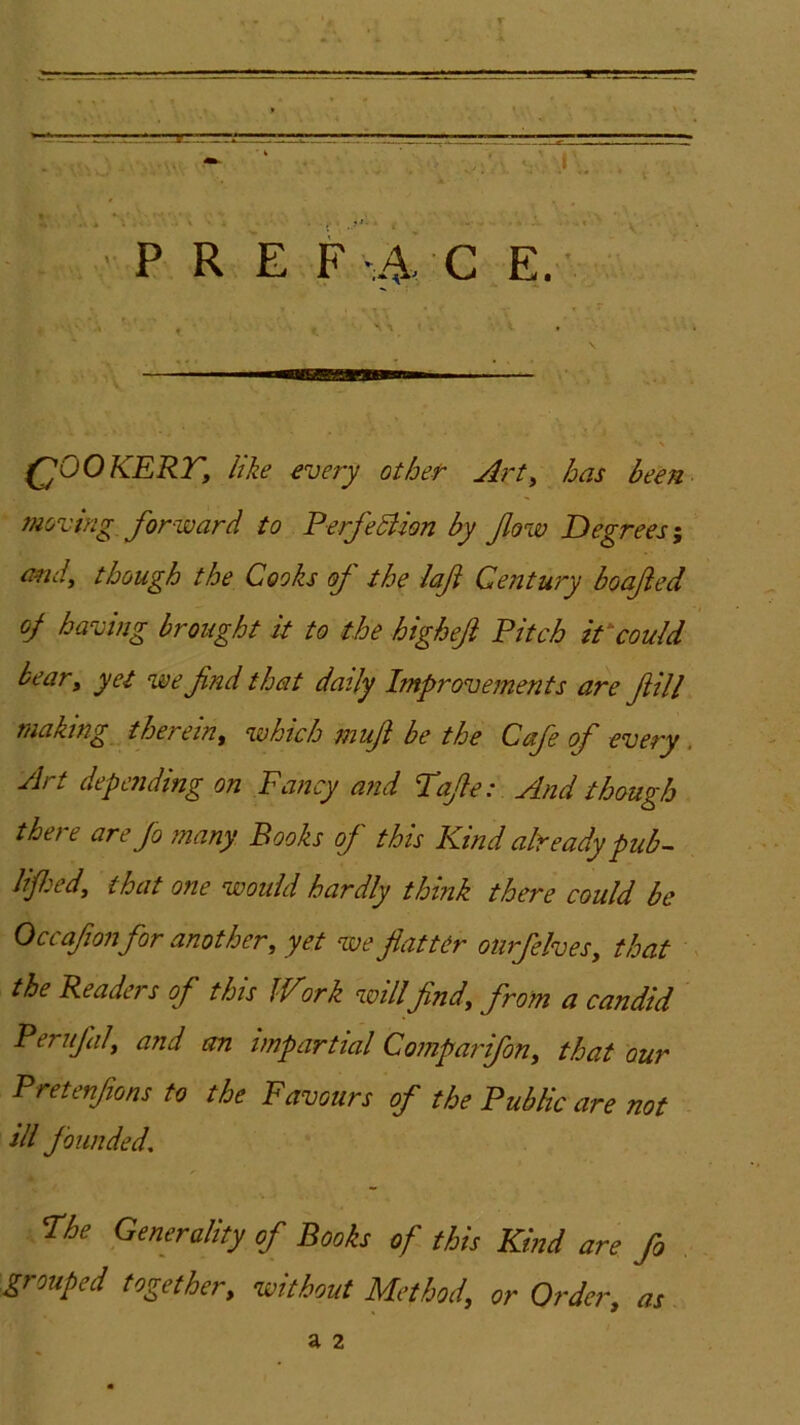 PREFACE.
COOKERY, like every other Art, has been
moving forward to Perfection by ſlow Degrees;
and, though the Cooks of the laſt Century boaſted
of having brought it to the higheſt Pitch it could
bear, yet we find that daily Improvements are ſtill
making therein, which muſt be the Caſe of every
Art depending on Fancy and Taſte: And though
there are ſo many Books of this Kind already pub-
liſhed, that one would hardly think there could be
Occaſion for another, yet we flatter ourſelves, that
the Readers of this Work will find, from a candid
Peruſal, and an impartial Compariſon, that our
Pretenſions to the Favours of the Public are not
ill founded.
The Generality of Books of this Kind are ſo
grouped together, without Method, or Order, as
a 2